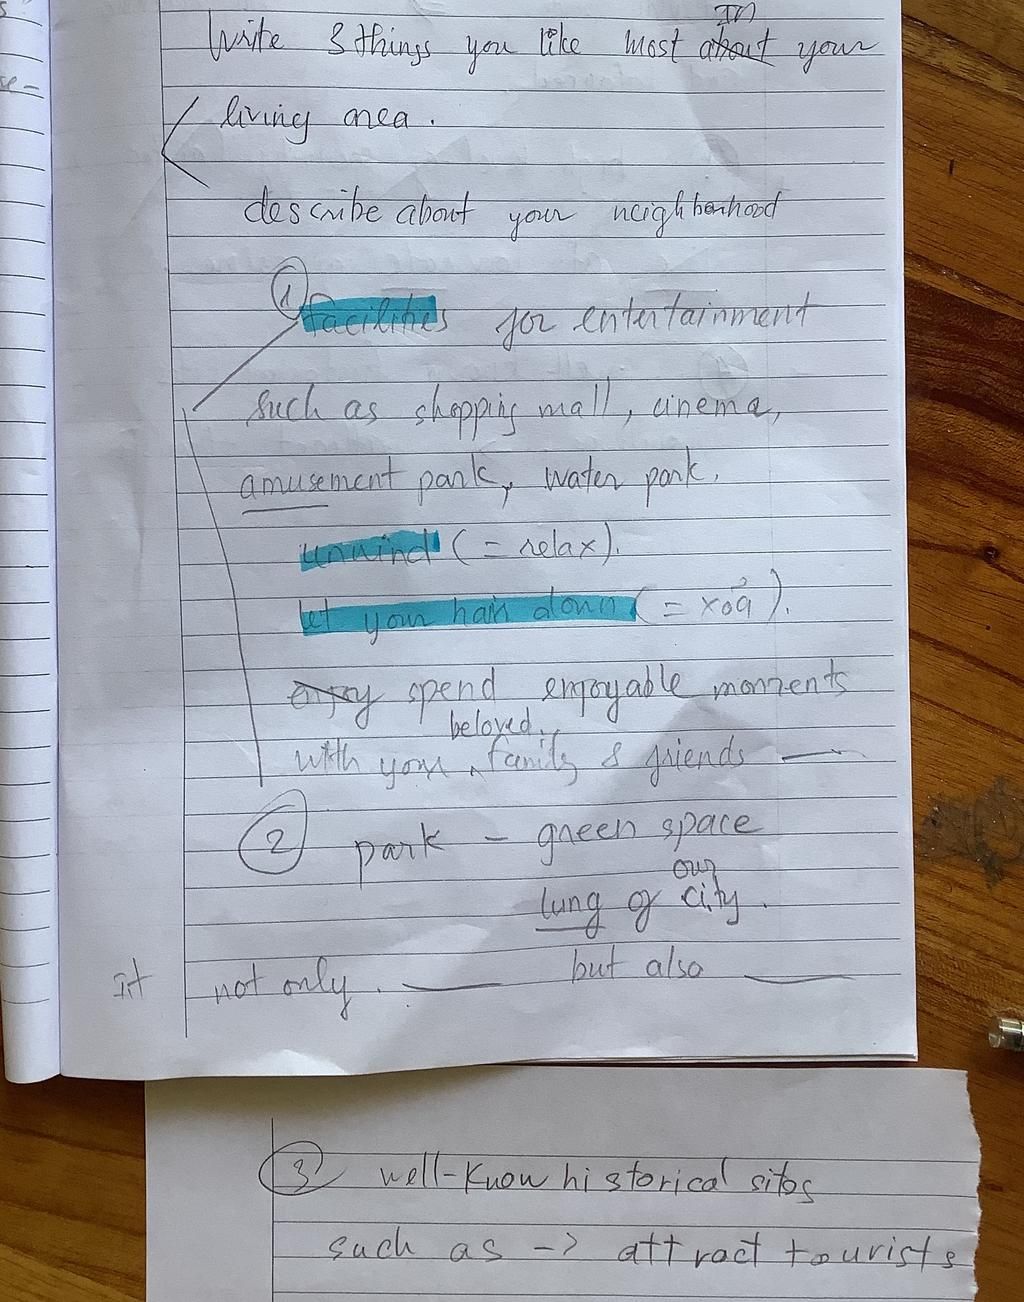 In
Write 3 things you like most about your
living area.
describe about your neighborhood
1 facilities for entertainment
such as shopping mall, cinema,
amusement park, water park.
unwind (= relax).
let your hair down (= xoã).
enjoy spend enjoyable moments
beloved
with your family & friends
2 park - green space
our
lung of city.
it not only. but also
3 well-know historical sites
such as -> attract tourists